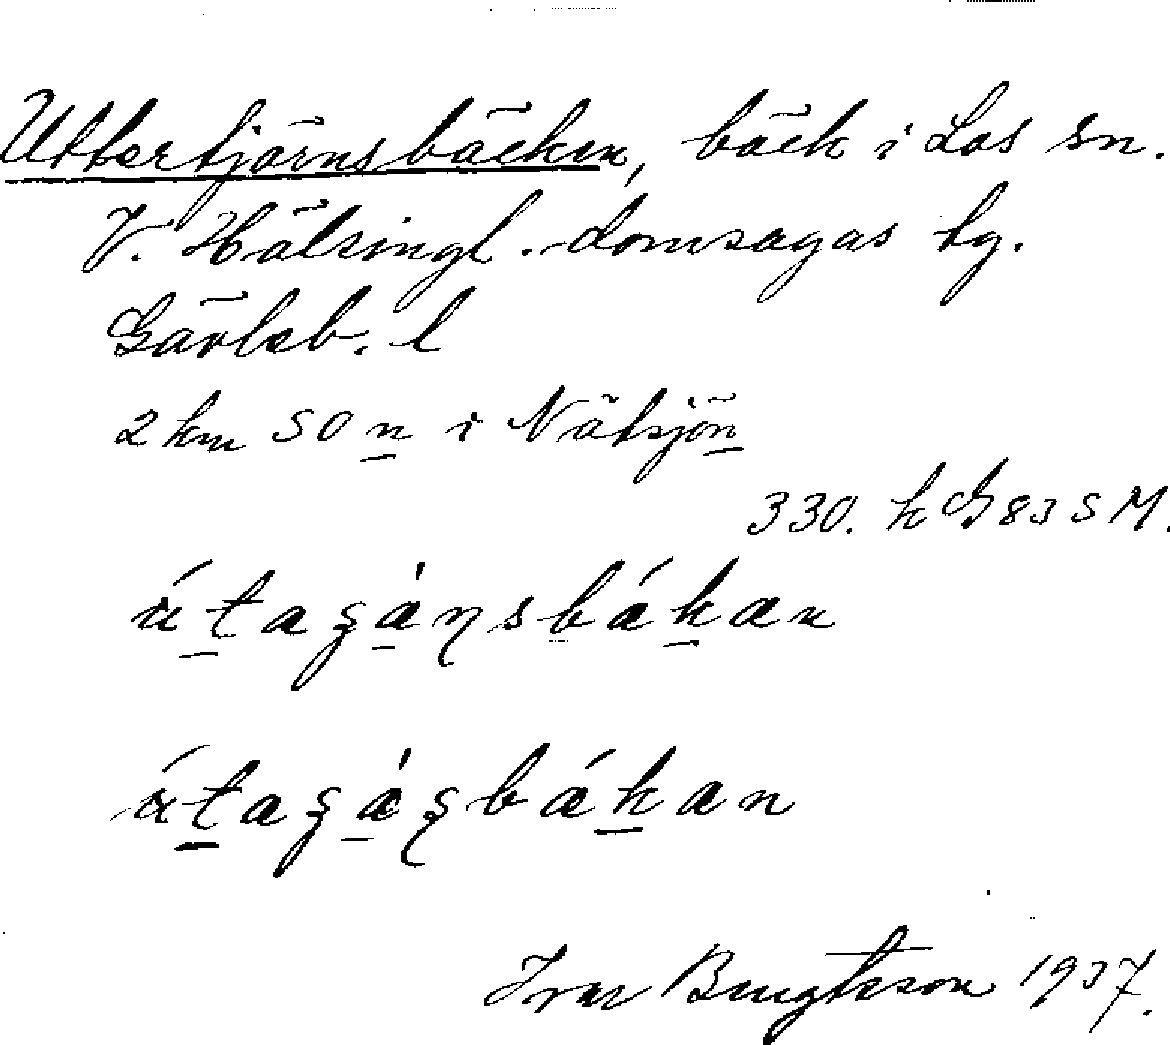 Uttertjärnsbäcken, bäck i Los sn.
V. Hälsingl. domsagas tg.
Gävleb. l
2 km SO n i Nätsjön
330. k G 83 SM.
Ivar Bengtsson 1937.